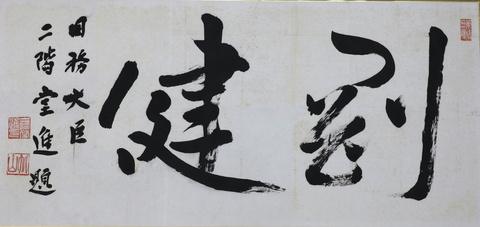 剛健
国務大臣
二階堂進題